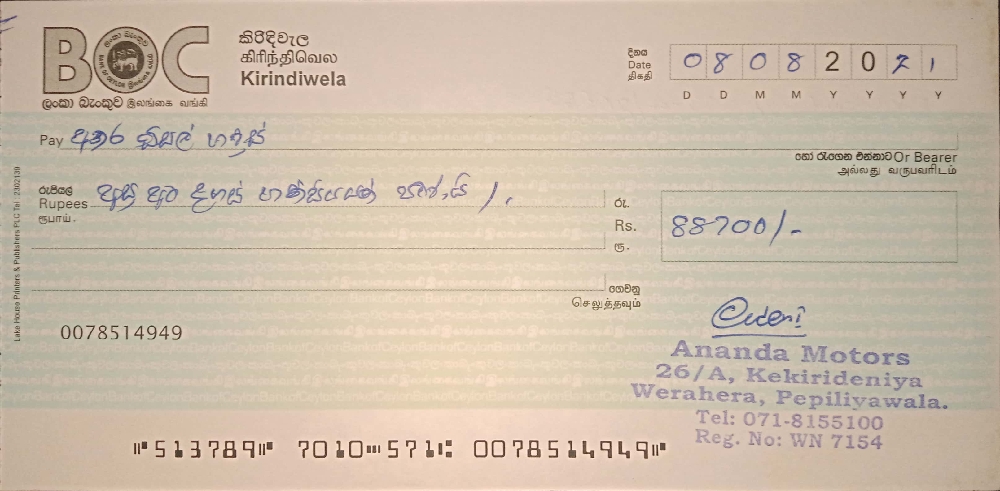 BOC
ලංකා බැංකුව இலங்கை வங்கி
කිරිඳිවැල
கிரிந்திவெல
Kirindiwela
දිනය
Date
திகதி
08082021
D D M M Y Y Y Y
Pay අතර ඩීසල් හවුස්
හෝ රැගෙන එන්නාට Or Bearer
அல்லது வருபவரிடம்
රුපියල්
Rupees අසූ අට දහස්
ரூபாய்.
රු.
Rs. 88700/-
ரூ.
ගෙවනු
செலுத்தவும்
0078514949
Ananda Motors
26/A, Kekirideniya
Werahera, Pepiliyawala.
Tel: 071-8155100
Reg. No: WN 7154
⑈513789⑈ 7010⑉571⑆ 0078514949⑈
Lake House Printers & Publishers PLC Tel : 2302139